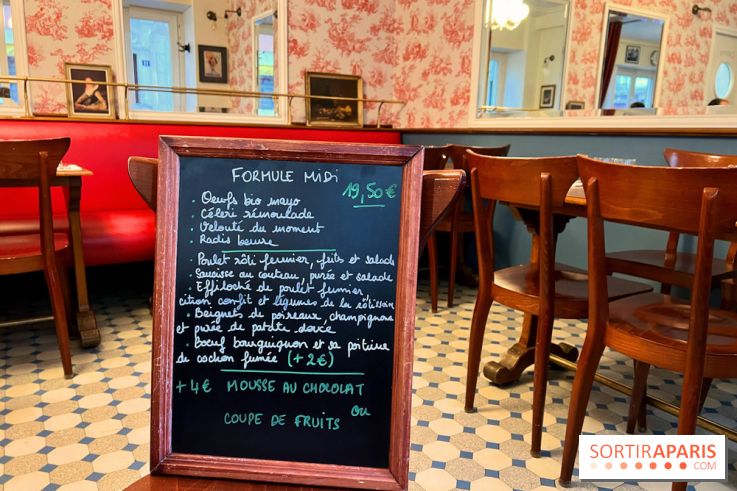 FORMULE MIDI
19,50€
. Oeufs bio mayo
. Céleri rémoulade
. Velouté du moment
. Radis beurre
. Poulet rôti fermier, frits et salade
. Saucisse au couteau, purée et salade
. Effiloché de poulet fermier
citron confit et légumes de la rôtissoire
. Beignets de poireaux, champignons
et purée de patate douce
. Boeuf bourguignon et sa poitrine
de cochon fumée (+2€)
+4€ MOUSSE AU CHOCOLAT
ou
COUPE DE FRUITS
SORTIRAPARIS
.COM